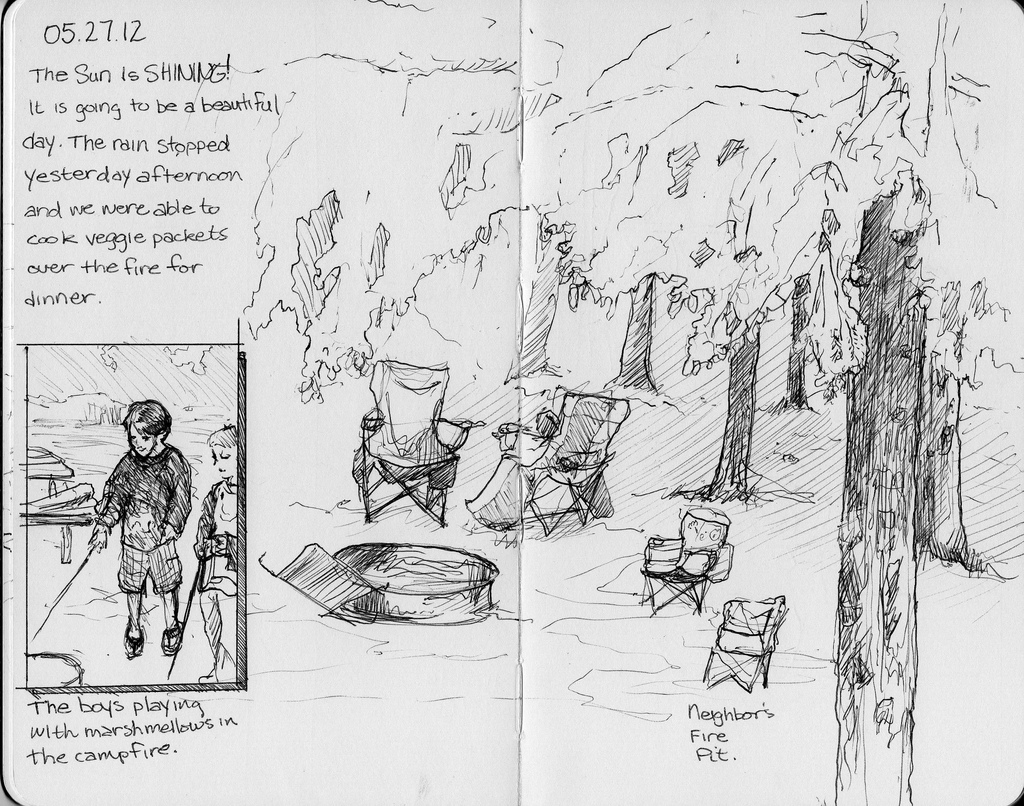 05.27.12
The Sun is SHINING!
It is going to be a beautiful
day. The rain stopped
yesterday afternoon
and we were able to
cook veggie packets
over the fire for
dinner.
The boys playing
with marshmellows in
the campfire.
Neighbor's
Fire
Pit.